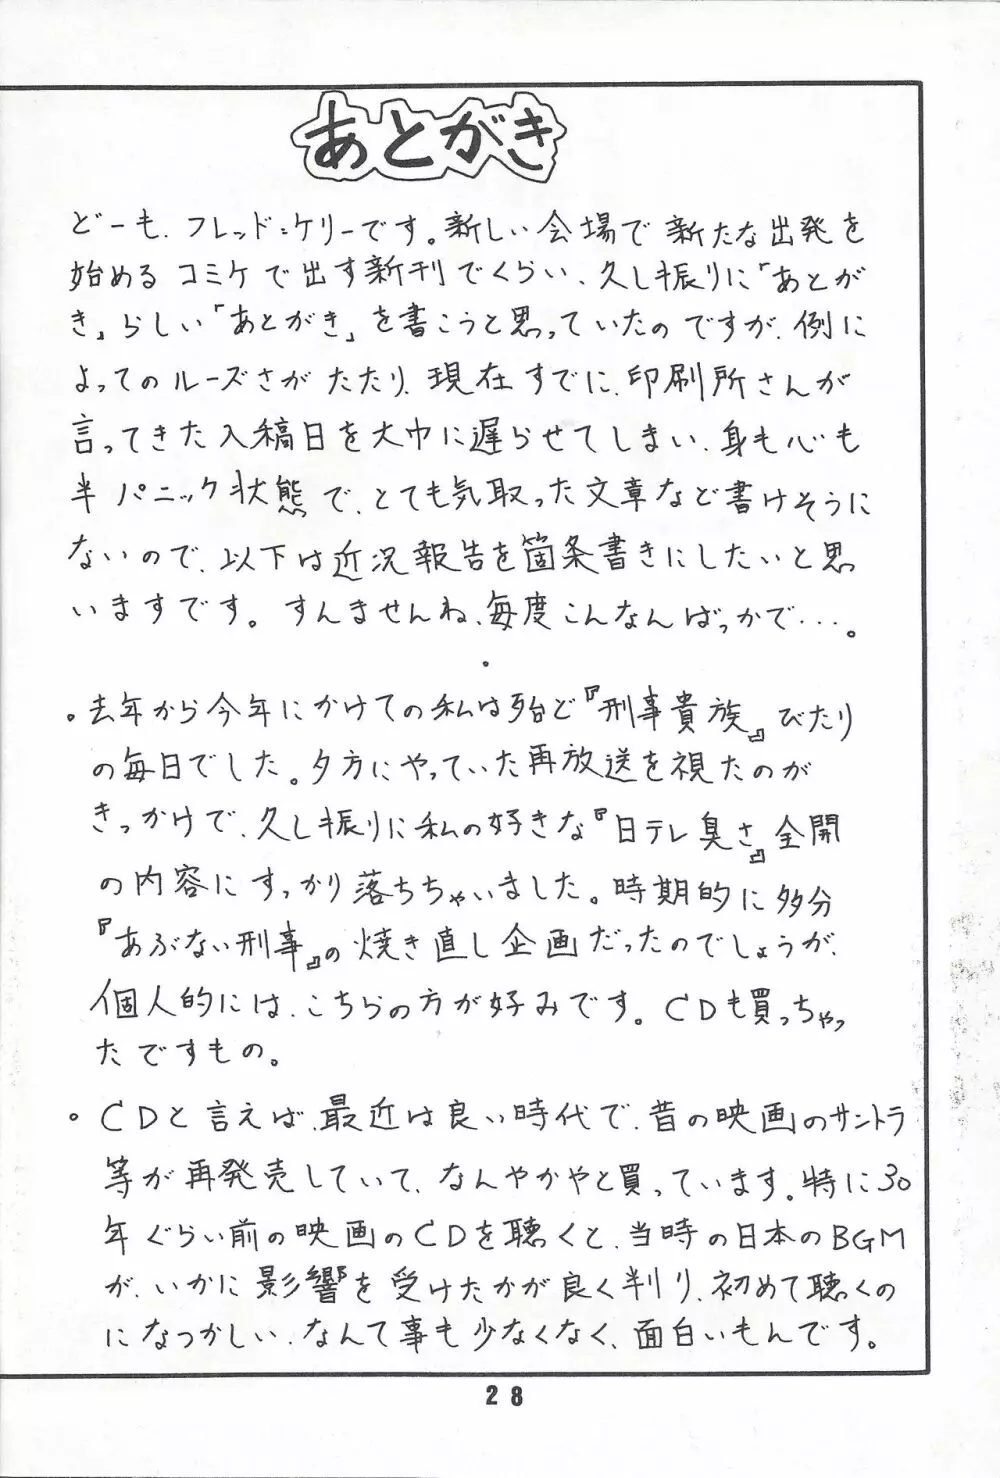 あとがき
どーも、フレッド=ケリーです。新しい会場で新たな出発を
始めるコミケで出す新刊でくらい、久し振りに「あとが
き」らしい「あとがき」を書こうと思っていたのですが、例に
よってのルーズさがたたり、現在すでに、印刷所さんが
言ってきた入稿日を大巾に遅らせてしまい、身も心も
半パニック状態で、とても気取った文章など書けそうに
ないので、以下は近況報告を箇条書きにしたいと思
いますです。すんませんね、毎度こんなんばっかで・・・。
・去年から今年にかけての私は殆ど『刑事貴族』びたり
の毎日でした。夕方にやっていた再放送を視たのが
きっかけで、久し振りに私の好きな『日テレ臭さ』全開
の内容にすっかり落ちちゃいました。時期的に多分
『あぶない刑事』の焼き直し企画だったのでしょうが、
個人的には、こちらの方が好みです。CDも買っちゃっ
たですもの。
・CDと言えば、最近は良い時代で、昔の映画のサントラ
等が再発売していて、なんやかやと買っています。特に30
年ぐらい前の映画のCDを聴くと、当時の日本のBGM
が、いかに影響を受けたかが良く判り、初めて聴くの
になつかしい、なんて事も少なくなく、面白いもんです。
28